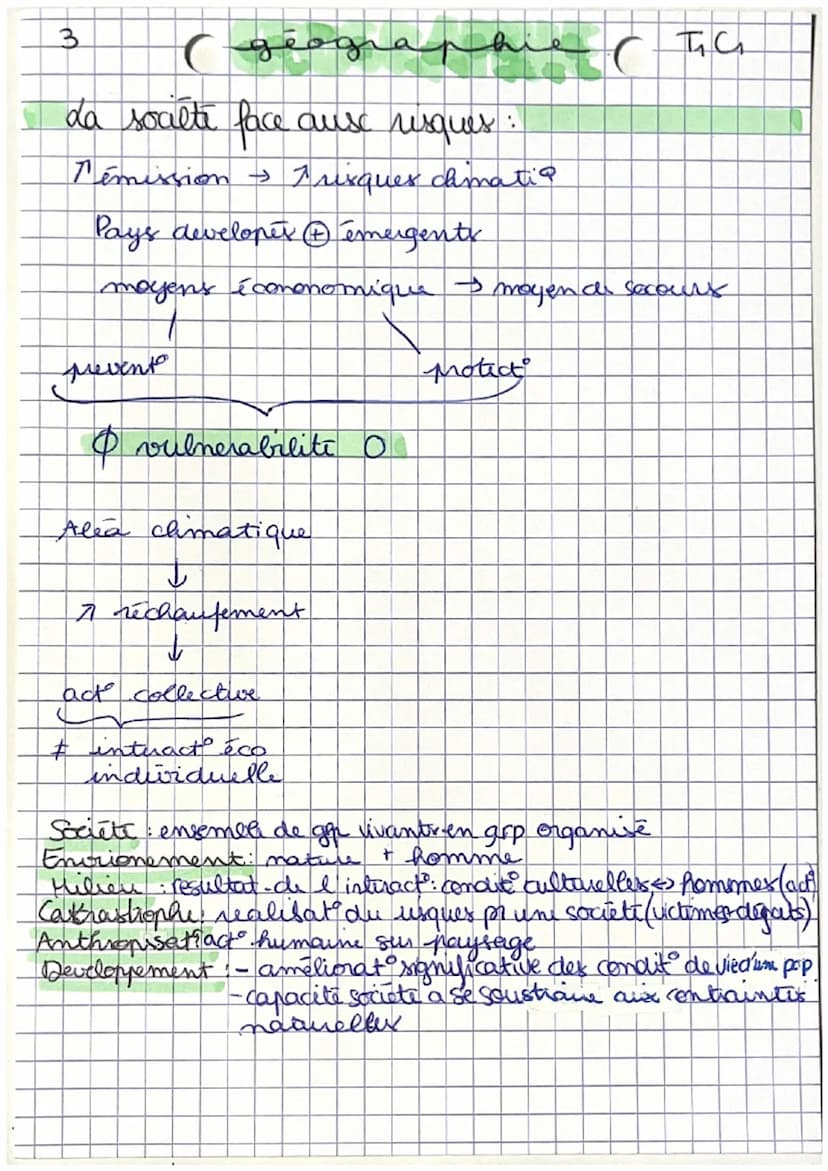 3 géographie T1 C1
La société face aux risques :
↗ émission → ↗ risques climatiq
Pays developés ⊕ émergents
moyens écononomique → moyen de secours
prevent° protect°
vulnerabilité 0
Aléa climatique
↓
↗ réchaufement
↓
act° collective
≠ interact° éco
individuelle
Société : ensemble de vivants en grp organisé
Envrionement : nature + homme
Milieu : résultat de l'interact° : condit° culturelles ↔ hommes (act)
Castrastrophe : realisat° du risques pr une societé (victimes-dégats)
Anthropisat° act° humaine sur paysage
Developpement : - améliorat° significative des condit° de vie d'une pop
- capacité société a se soustraire aux contraintes
naturelles